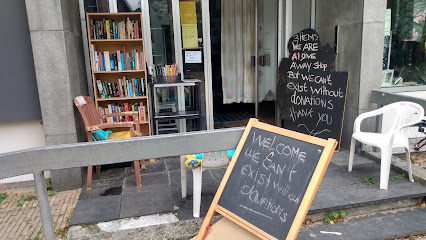 3 ITEMS
WE ARE
A LOVE
AWAY Shop
But WE CAN'T
EXIST WITHOUT
DONATIONS
THANK
YOU
WELCOME
WE CAN'T
EXIST WITHOUT
DONATIONS